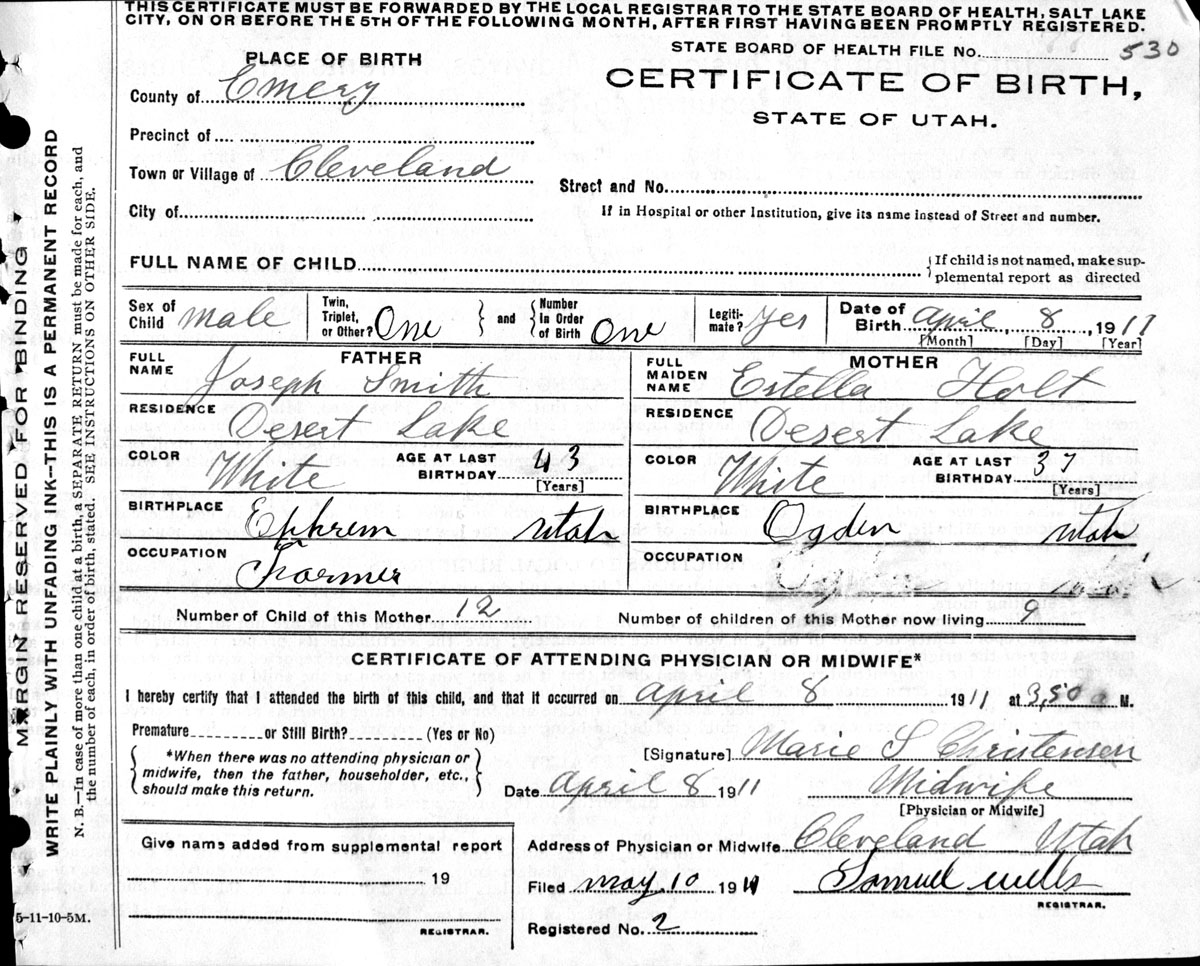 THIS CERTIFICATE MUST BE FORWARDED BY THE LOCAL REGISTRAR TO THE STATE BOARD OF HEALTH, SALT LAKE
CITY, ON OR BEFORE THE 5TH OF THE FOLLOWING MONTH, AFTER FIRST HAVING BEEN PROMPTLY REGISTERED.
STATE BOARD OF HEALTH FILE No. 530
PLACE OF BIRTH
CERTIFICATE OF BIRTH,
STATE OF UTAH.
County of Emery
Precinct of
Town or Village of Cleveland
Street and No.
City of
If in Hospital or other Institution, give its name instead of Street and number.
FULL NAME OF CHILD
If child is not named, make sup-
plemental report as directed
Sex of Child male
Twin, Triplet, or Other? One
and
Number in Order of Birth One
Legiti-mate? Yes
Date of Birth April 8, 1911
[Month] [Day] [Year]
FATHER
FULL NAME Joseph Smith
MOTHER
FULL MAIDEN NAME Estella Holt
RESIDENCE Desert Lake
RESIDENCE Desert Lake
COLOR White AGE AT LAST BIRTHDAY 43 [Years]
COLOR White AGE AT LAST BIRTHDAY 37 [Years]
BIRTHPLACE Ephrem Utah
BIRTHPLACE Ogden Utah
OCCUPATION Farmer
OCCUPATION
Number of Child of this Mother 12 Number of children of this Mother now living 9
CERTIFICATE OF ATTENDING PHYSICIAN OR MIDWIFE*
I hereby certify that I attended the birth of this child, and that it occurred on April 8 1911 at 3,50 a M.
Premature or Still Birth? (Yes or No)
*When there was no attending physician or
midwife, then the father, householder, etc.,
should make this return.
[Signature] Marie S Christensen
Date April 8 1911 Midwife
[Physician or Midwife]
Give name added from supplemental report
19
REGISTRAR.
Address of Physician or Midwife Cleveland Utah
Filed May, 10 1911 Samuel Wells
REGISTRAR.
Registered No. 2
5-11-10-5M.
MARGIN RESERVED FOR BINDING
WRITE PLAINLY WITH UNFADING INK--THIS IS A PERMANENT RECORD
N. B.—In case of more than one child at a birth, a SEPARATE RETURN must be made for each, and
the number of each, in order of birth, stated. SEE INSTRUCTIONS ON OTHER SIDE.